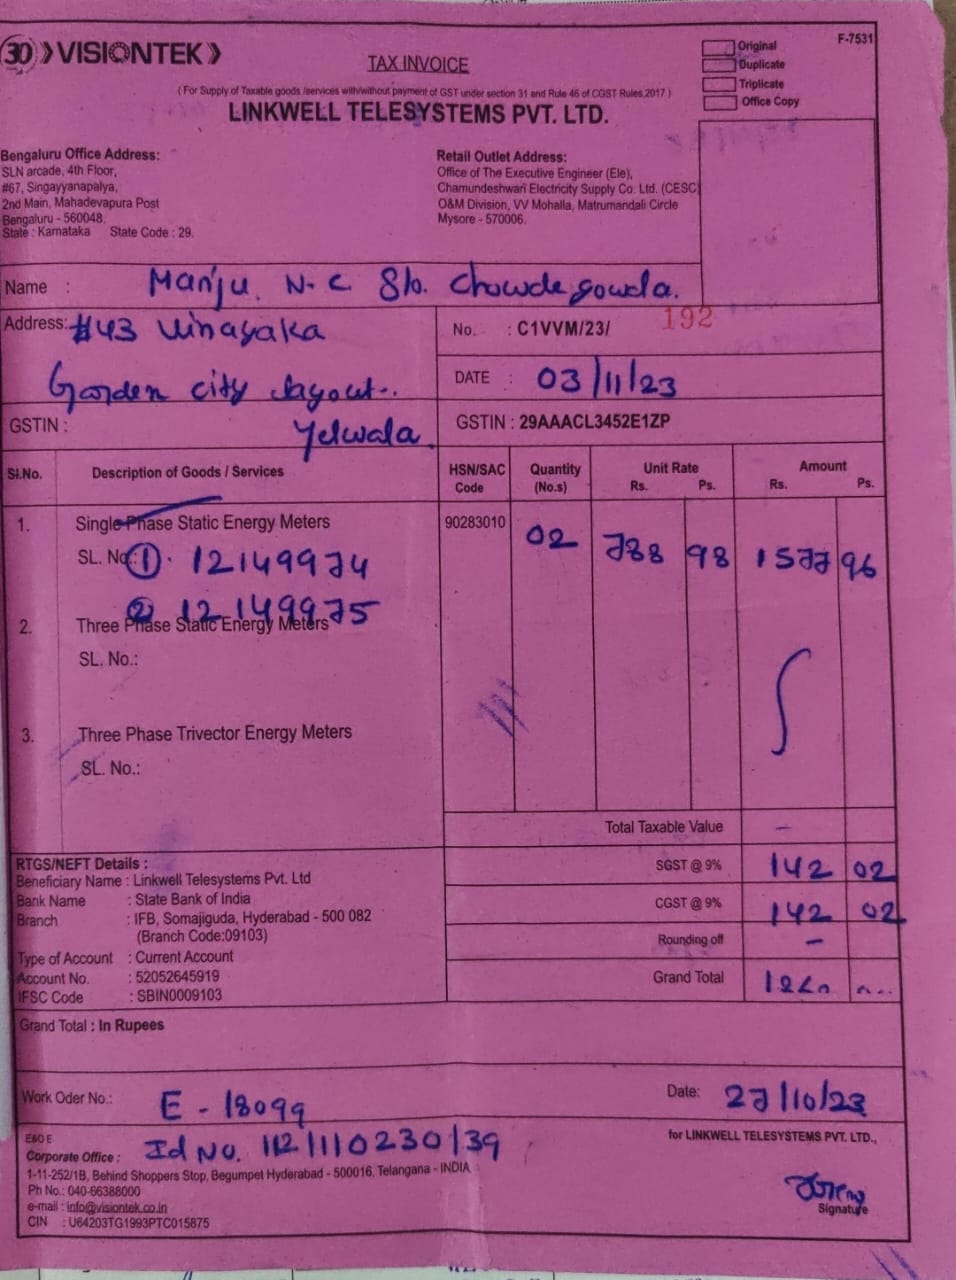 30 VISIONTEK
TAX INVOICE
F-7531
Original
Duplicate
Triplicate
Office Copy
( For Supply of Taxable goods /services with/without payment of GST under section 31 and Rule 46 of CGST Rules,2017 )
LINKWELL TELESYSTEMS PVT. LTD.
Bengaluru Office Address:
SLN arcade, 4th Floor,
#67, Singayyanapalya,
2nd Main, Mahadevapura Post
Bengaluru - 560048.
State : Karnataka State Code : 29.
Retail Outlet Address:
Office of The Executive Engineer (Ele),
Chamundeshwari Electricity Supply Co. Ltd. (CESC)
O&M Division, VV Mohalla, Matrumandali Circle
Mysore - 570006.
Name : Manju. N. C S/o. Chowde gowda.
Address: #43 Vinayaka
Garden city Layout..
Yelwala.
No. : C1VVM/23/ 192
DATE : 03/11/23
GSTIN :
GSTIN : 29AAACL3452E1ZP
Sl.No. Description of Goods / Services HSN/SAC Code Quantity (No.s) Unit Rate Rs. Ps. Amount Rs. Ps.
1. Single Phase Static Energy Meters 90283010 02 788 98 1577 96
SL. No.: ① . 12149974
② 12149975
2. Three Phase Static Energy Meters
SL. No.:
3. Three Phase Trivector Energy Meters
SL. No.:
Total Taxable Value –
SGST @ 9% 142 02
CGST @ 9% 142 02
Rounding off –
Grand Total
RTGS/NEFT Details :
Beneficiary Name : Linkwell Telesystems Pvt. Ltd
Bank Name : State Bank of India
Branch : IFB, Somajiguda, Hyderabad - 500 082
(Branch Code:09103)
Type of Account : Current Account
Account No. : 52052645919
IFSC Code : SBIN0009103
Grand Total : In Rupees
Work Oder No.: E - 18099 Date: 27/10/23
E&O E
Id No. 112/110230/39
for LINKWELL TELESYSTEMS PVT. LTD.,
Corporate Office :
1-11-252/1B, Behind Shoppers Stop, Begumpet Hyderabad - 500016, Telangana - INDIA
Ph No.: 040-66388000
e-mail : info@visiontek.co.in
CIN : U64203TG1993PTC015875
Signature